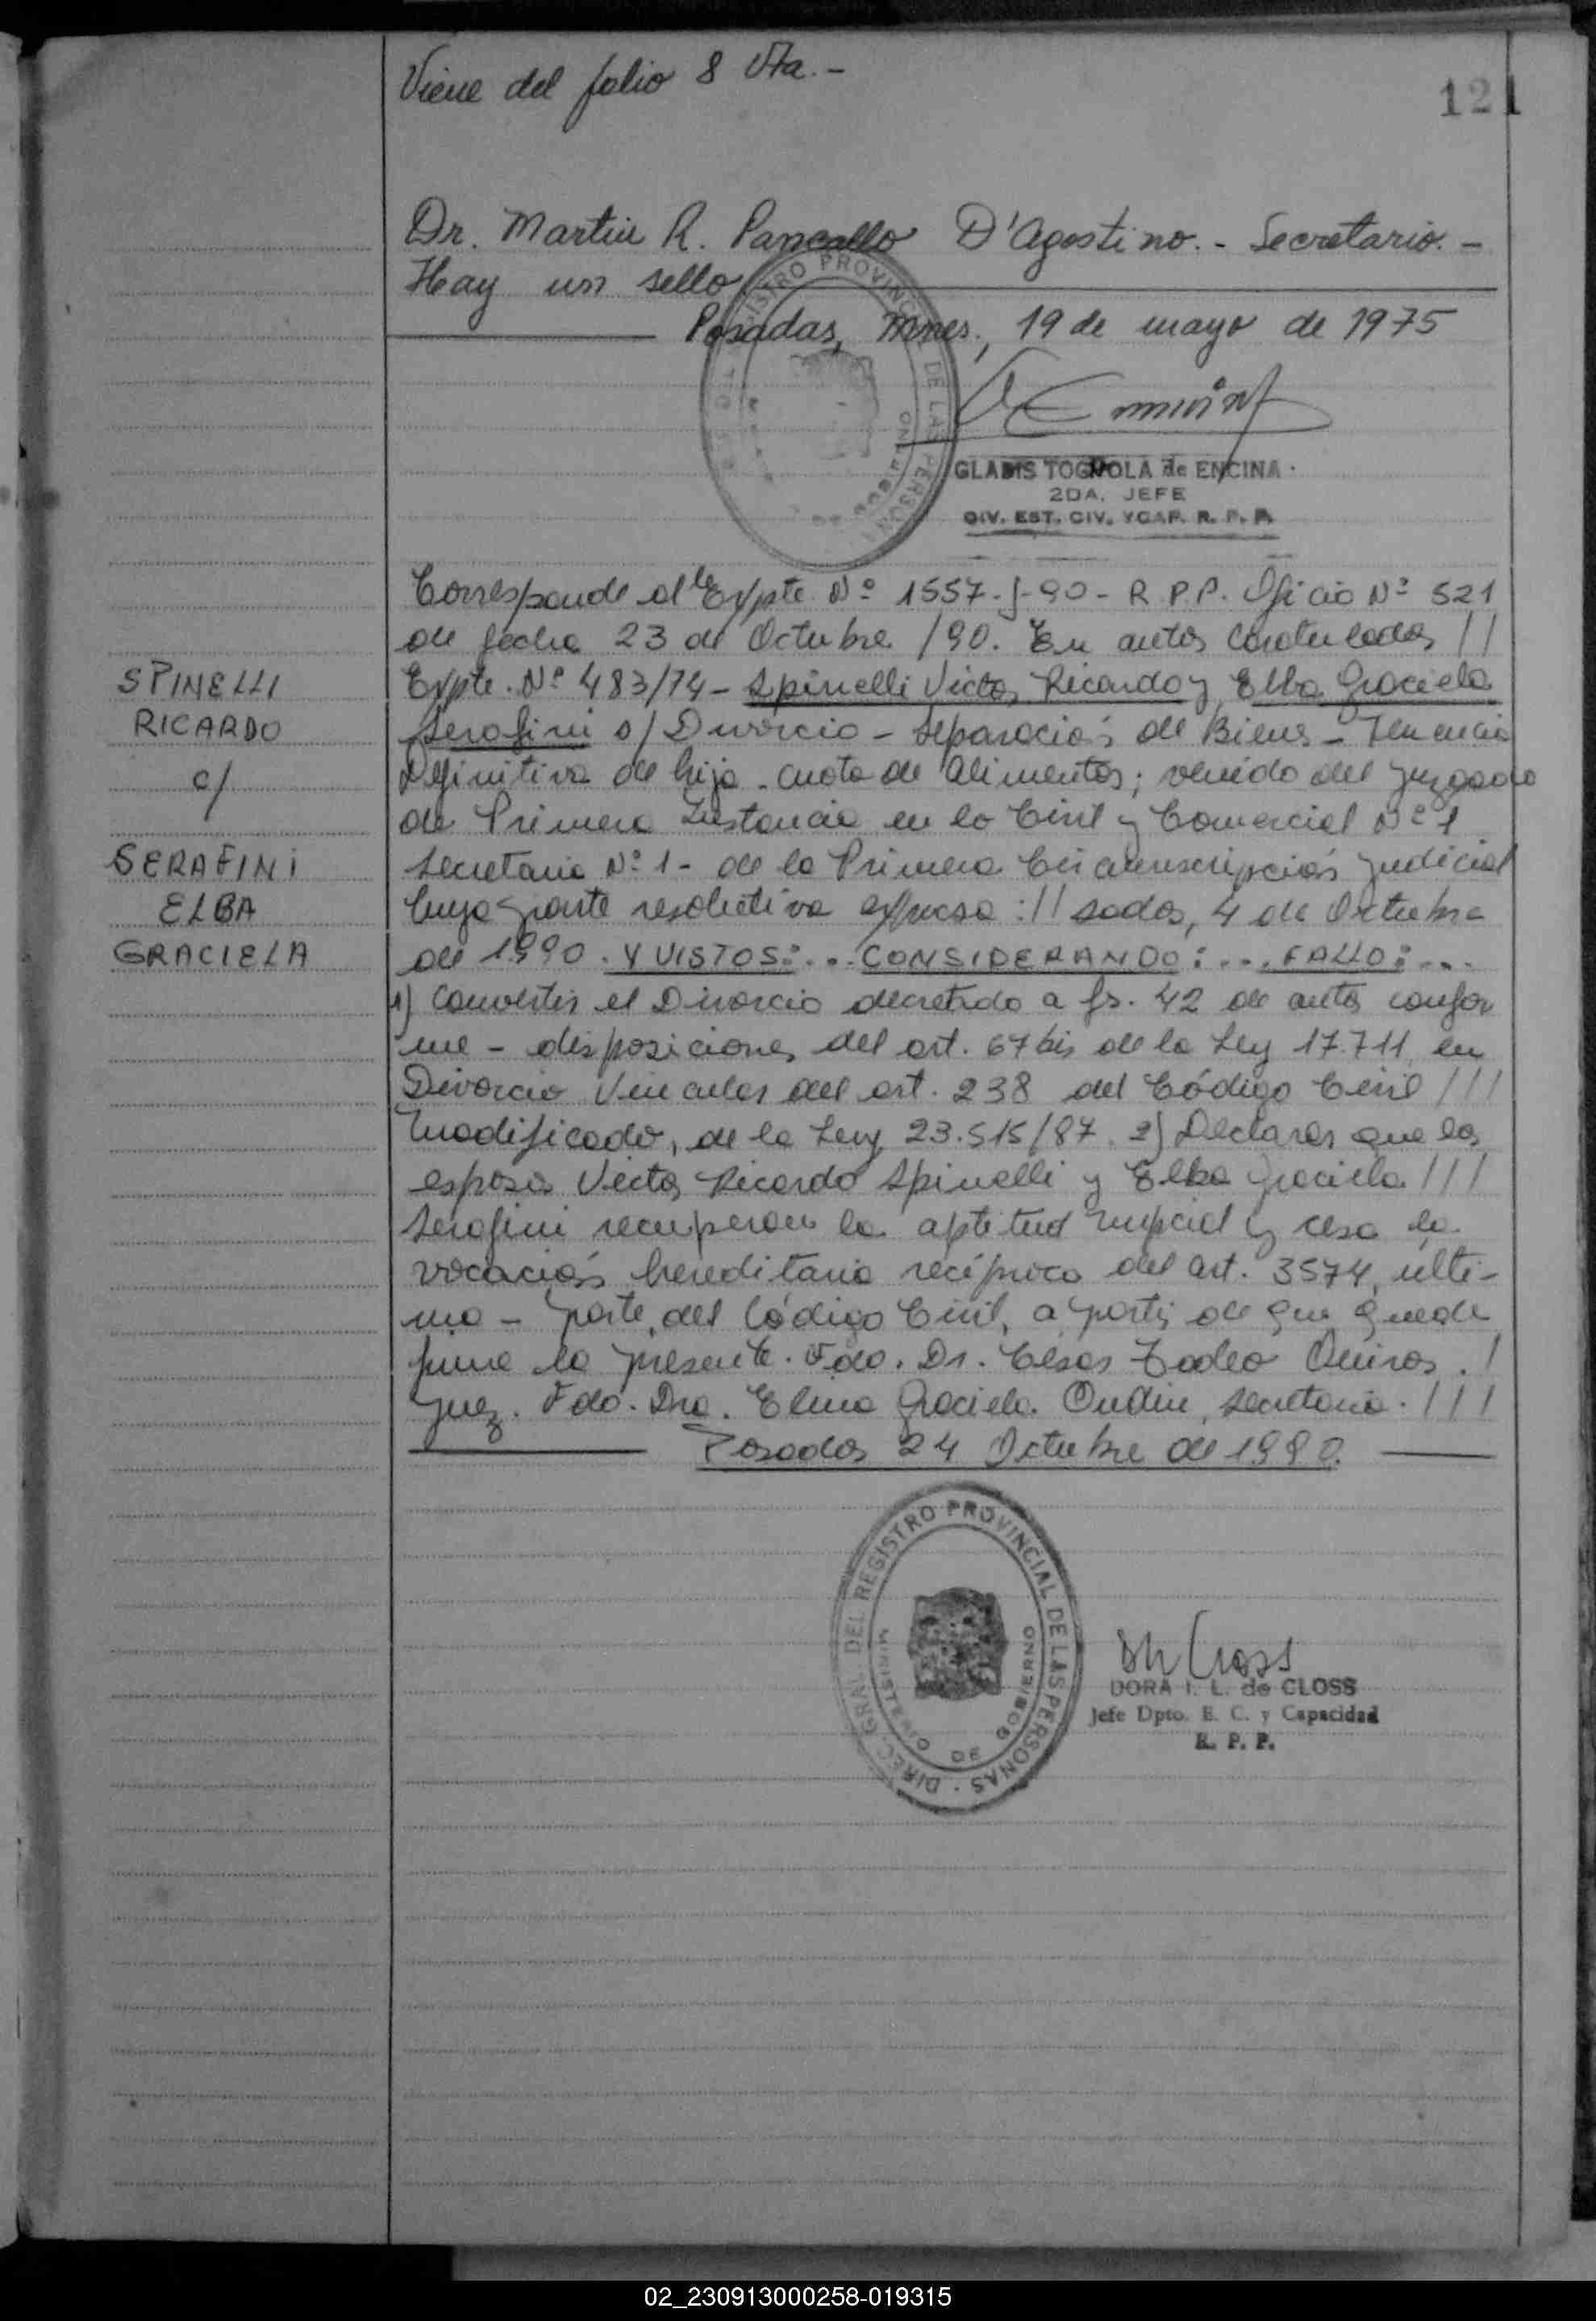 Viene del folio 8 Vta.-
121
Dr. Martin R. Pancallo D'Agostino.- Secretario.-
Hay un sello
Posadas, Mnes., 19 de mayo de 1975
GLADIS TOGNOLA de ENCINA
2DA. JEFE
DIV. EST. CIV. Y CAP. R. P. P.
Corresponde al Expte. Nº 1557-S-90- R.P.P. Oficio Nº 521
de fecha 23 de Octubre /90. En autos Caratulados //
SPINELLI
RICARDO
c/
SERAFINI
ELBA
GRACIELA
Expte. Nº 483/74- Spinelli Victor Ricardo y Elba Graciela
Serafini s/ Divorcio - Separación de Bienes - Tenencia
Definitiva de hija - cuota de alimentos; venido del Juzgado
de Primera Instancia en lo Civil y Comercial Nº 1
Secretaria Nº 1- de la Primera Circunscripción Judicial
Cuya parte resolutiva expresa: // sadas, 4 de Octubre
de 1990. Y VISTOS:... CONSIDERANDO:... FALLO:...
1) Convertir el Divorcio decretado a fs. 42 de autos confor
me - disposiciones del art. 67 bis de la Ley 17.711 en
Divorcio Vincular del art. 238 del Código Civil ///
Modificado, de la Ley 23.515/87. 2) Declarar que los
esposos Victor Ricardo Spinelli y Elba Graciela ///
Serafini recuperan la aptitud nupcial y cesa la
vocación hereditaria recíproca del art. 3574, últi-
mo - parte, del Código Civil, a partir de que quede
firme la presente. Fdo. Dr. Cesar Tadeo Quiros. /
Juez. Fdo. Dra. Elina Graciela Ondin, secretaria. ///
Posadas 24 Octubre de 1990.
DIREC. GRAL. DEL REGISTRO PROVINCIAL DE LAS PERSONAS
MINISTERIO DE GOBIERNO
DORA I. L. de CLOSS
Jefe Dpto. E. C. y Capacidad
R. P. P.
02_230913000258-019315